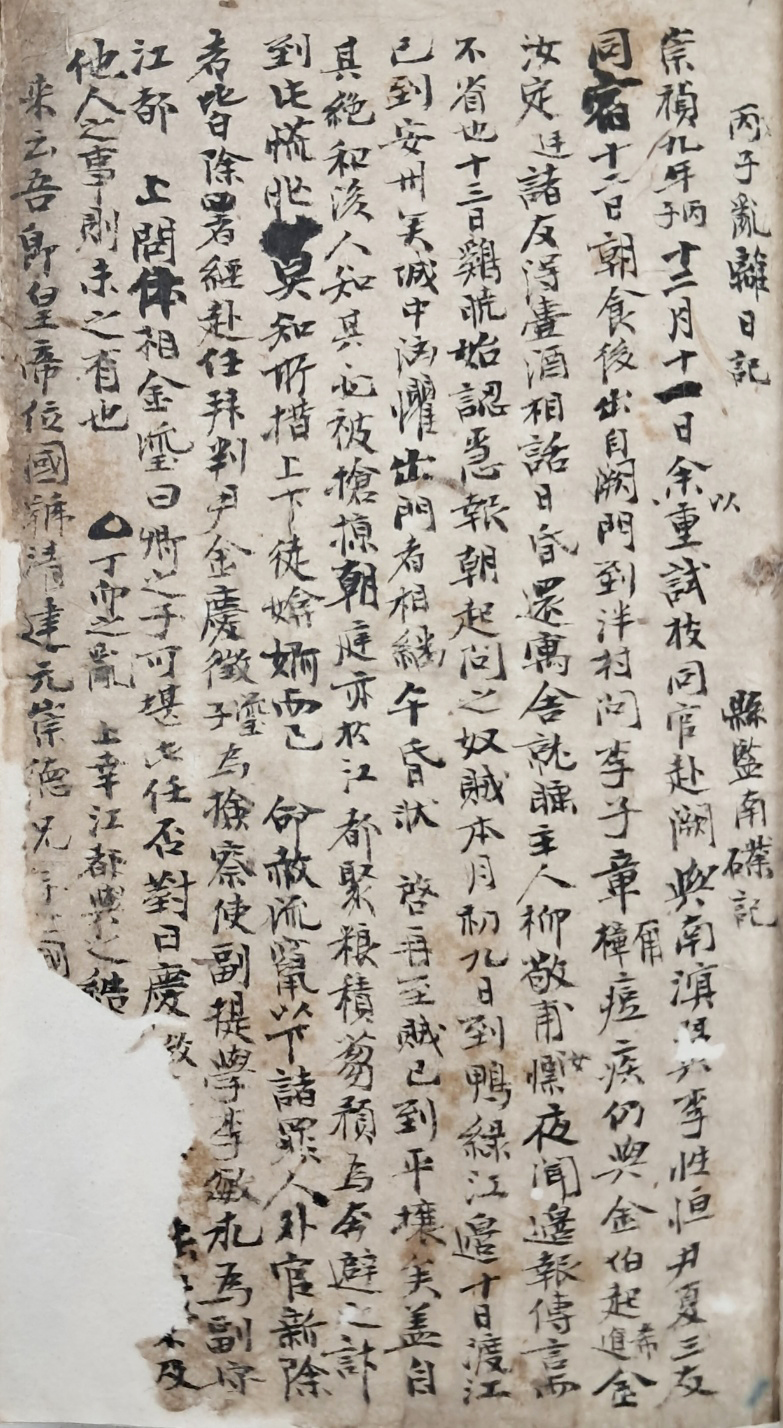 丙子亂離日記 縣監南礏記
崇禎九年丙子十二月十一日余以重試枝同官赴闕與南滇與李性恒尹夏三友
同宿十二日朝食後出自闕門到泮村問李子章痘疾仍與金伯起進希金
汝定廷諸友得壺酒相話日昏還寓舍就睡主人柳敬甫汝慓夜聞邊報傳言而
不省也十三日鷄晩始認急報朝起問之奴賊本月初九日到鴨綠江邊十日渡江
已到安州矣城中洶懼出門者相繼午昏狀 啓再至賊已到平壤矣盖自
其絶和後人知其必被搶掠朝庭亦於江都聚粮積芻預爲奔避之計
到此慌忙莫知所措上下徒媕婀而已 命赦流竄以下諸罪人外官新除
者皆除署經赴任拜判尹金慶徵瑬子爲檢察使副提學李敏求爲副
江都 上問体相金瑬曰卿之子可堪此任否對曰慶徵
他人之事則未之有也 丁卯之亂 上幸江都與之結
來云吾卽皇帝位國號清建元崇德兄